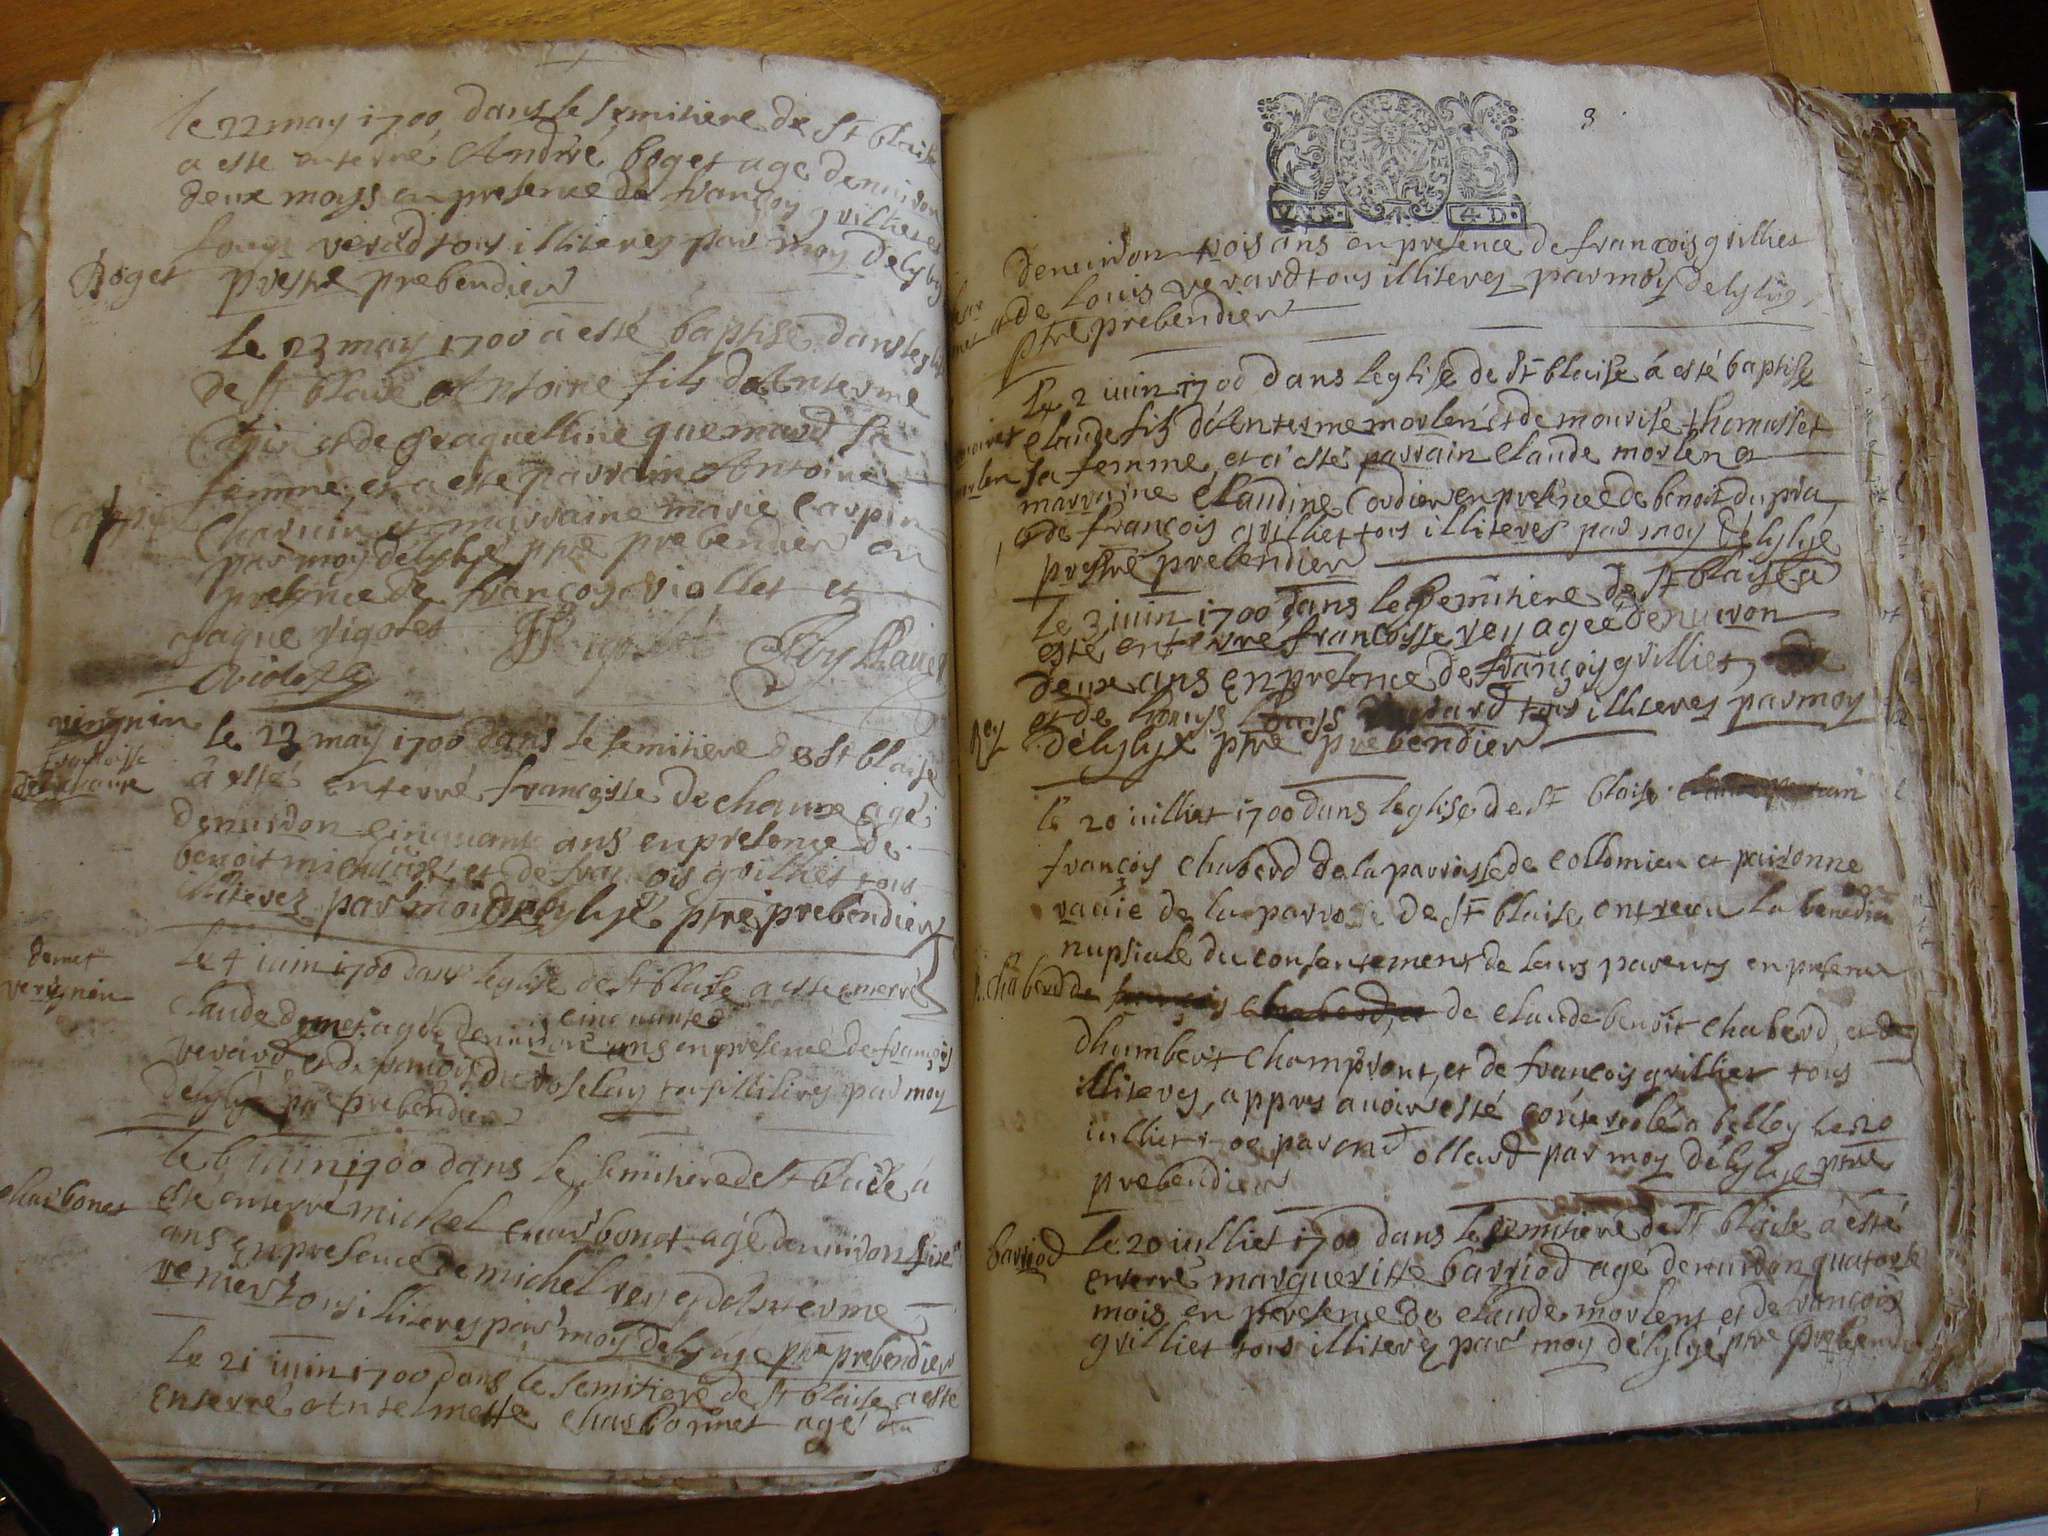 le 22 may 1700 dans le semitiere de St blaise
a esté enterré André boget agé denuiron
deux moys en presence de françoy grilliet et
Louys verard tous illiteres par moy Delylye
Boget
prestre prebendier
le 23 may 1700 à esté baptisé dans leglise
de St blaise Antoine fils dAnterme
et de Jaquelline quemard sa
femme, et a esté parrain Antoine
et marraine marie carpin
par moy délylye ptre prebendier en
presence de françoy viollet et
Jaque rigolet
vingnin
françoisse
de chaune
le 23 may 1700 dans le semitiere de St blaise
à esté enterré françoisse de chaune agé
denuiron cinquante ans en presence de
benoit et de françois grilliet tous
illiterez par moy delylye ptre prebendier
demet
vergnin
le 4 iuin 1700 dans leglise de St blaise a esté enterré
claude demet agé denuiron cinquante ans en presence de françois
verard, et de françois tous illiteres par moy
Delylye ptre prebendier
le 6 iuin 1700 dans le semitiere de St blaise à
charbonet
esté enterré michel charbonet agé denuiron
ans en presence de michel rey et dAnterme
venier tous illiteres par moy delylye ptre prebendier
le 21 iuin 1700 dans le semitiere de St blaise a esté
enterré Antelmette charbonnet agé
3
VN S. 4 D.
denuiron trois ans en presence de françois grilliet
et de Louis verard tous illiteres par moy delylye
ptre prebendier
le 2 iuin 1700 dans leglise de St blaise à esté baptisé
claude fils dAnterme morlen et de mourise thomasset
sa femme, et à esté parrain claude morlen et
marraine claudine Cordier en presence de benoit dupra
et de françois grilliet tous illiteres par moy Délylye
prestre prebendier
le 3 iuin 1700 dans le semitiere de St blaise a
esté enterré françoisse rey agée denuiron
deux ans en presence de françois grilliet,
Rey
et de Louys verard tous illiteres par moy
délylye ptre prebendier
le 20 iuilliet 1700 dans leglise de St blaise
françois chaberd de la parroisse de collomieu et
de la parroisse de St blaise, ont receu la benediction
nupsiale du consentement de leurs parents en presence
chaberd
de claude benoit chaberd, et de
dhumbert champront, et de françois grilliet tous
illiteres, appres auoir esté controolé a belley le 20
iulliet 1700 par ollard par moy délylye ptre
prebendier
barriod
le 20 iulliet 1700 dans le semitiere de St blaise à esté
enterré margueritte barriod agé denuiron quatorse
mois en presence de claude morlent et de françois
grilliet tous illiterez par moy délylyé ptre prebendier